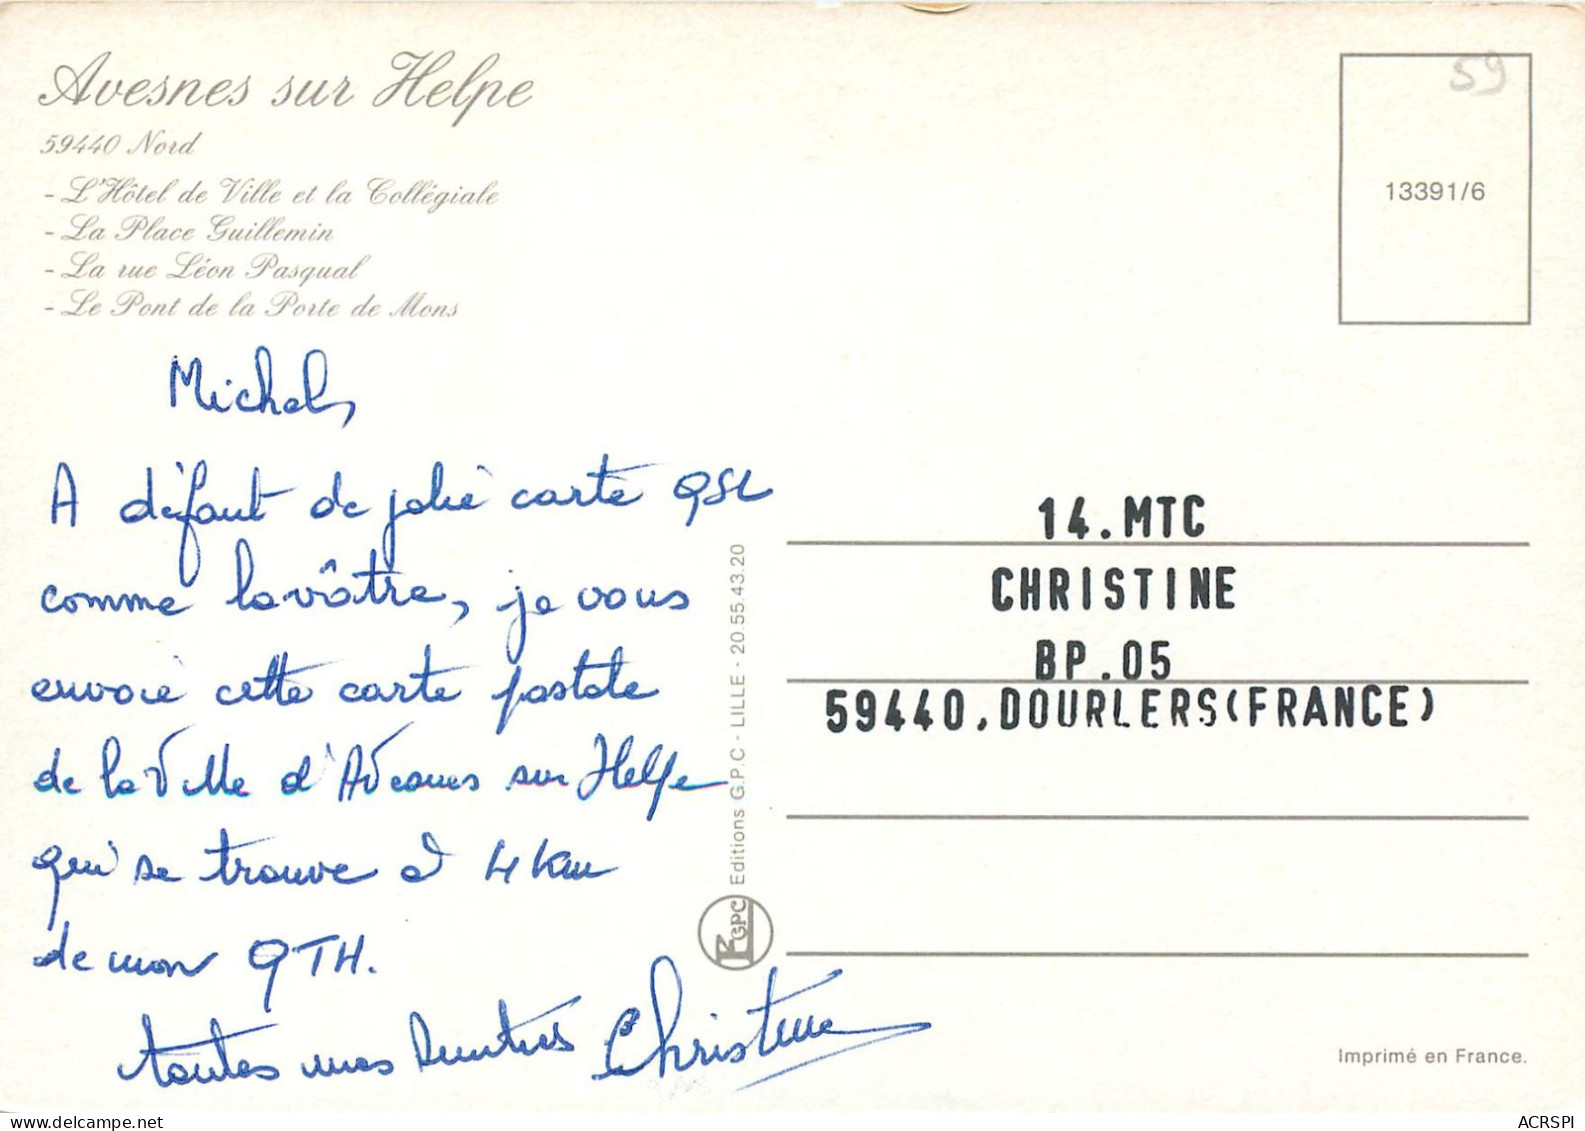 Avesnes sur Helpe
59440 Nord
- L'Hôtel de Ville et la Collégiale
- La Place Guillemin
- La rue Léon Pasqual
- Le Pont de la Porte de Mons
59
13391/6
Michel,
A défaut de jolie carte QSL
comme la vôtre, je vous
envoie cette carte postale
de la Ville d'Avesnes sur Helpe
qui se trouve à 4 km
de mon QTH.
toutes mes Amitiés Christine
14.MTC
CHRISTINE
BP.05
59440.DOURLERS(FRANCE)
GPC Editions G.P.C - LILLE - 20.55.43.20
Imprimé en France.
ACRSPI